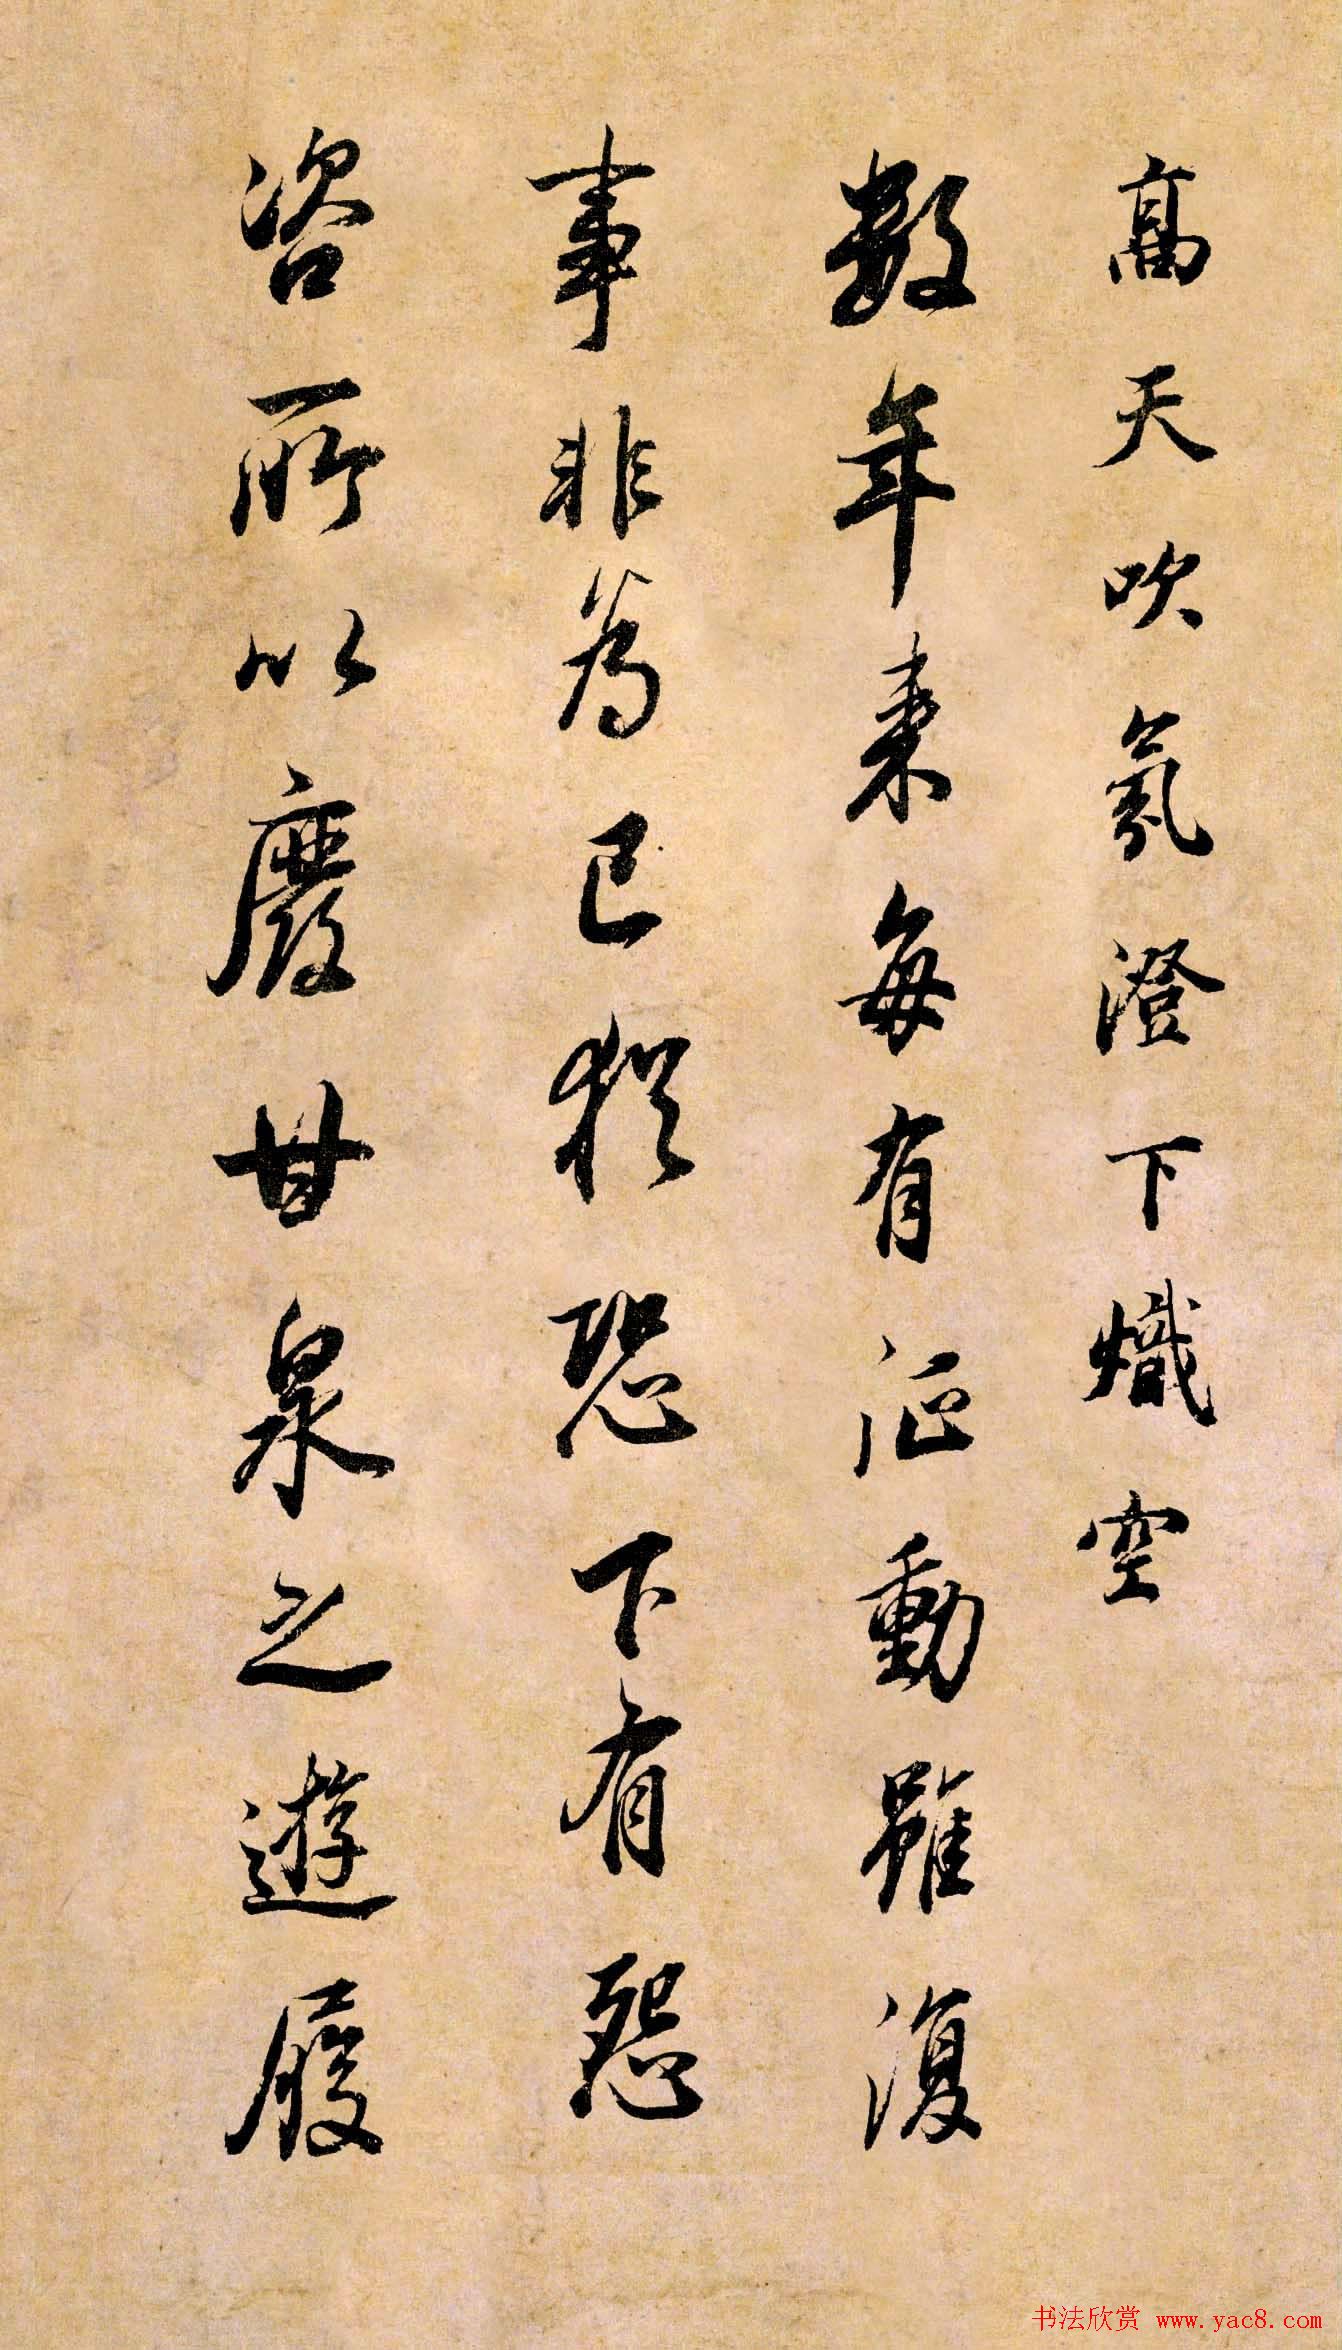 高天吹氛澄下熾空
數年来每有征動雖復
事非為己猶恐下有怨
咨所以廢甘泉之遊履
书法欣赏 www.yac8.com